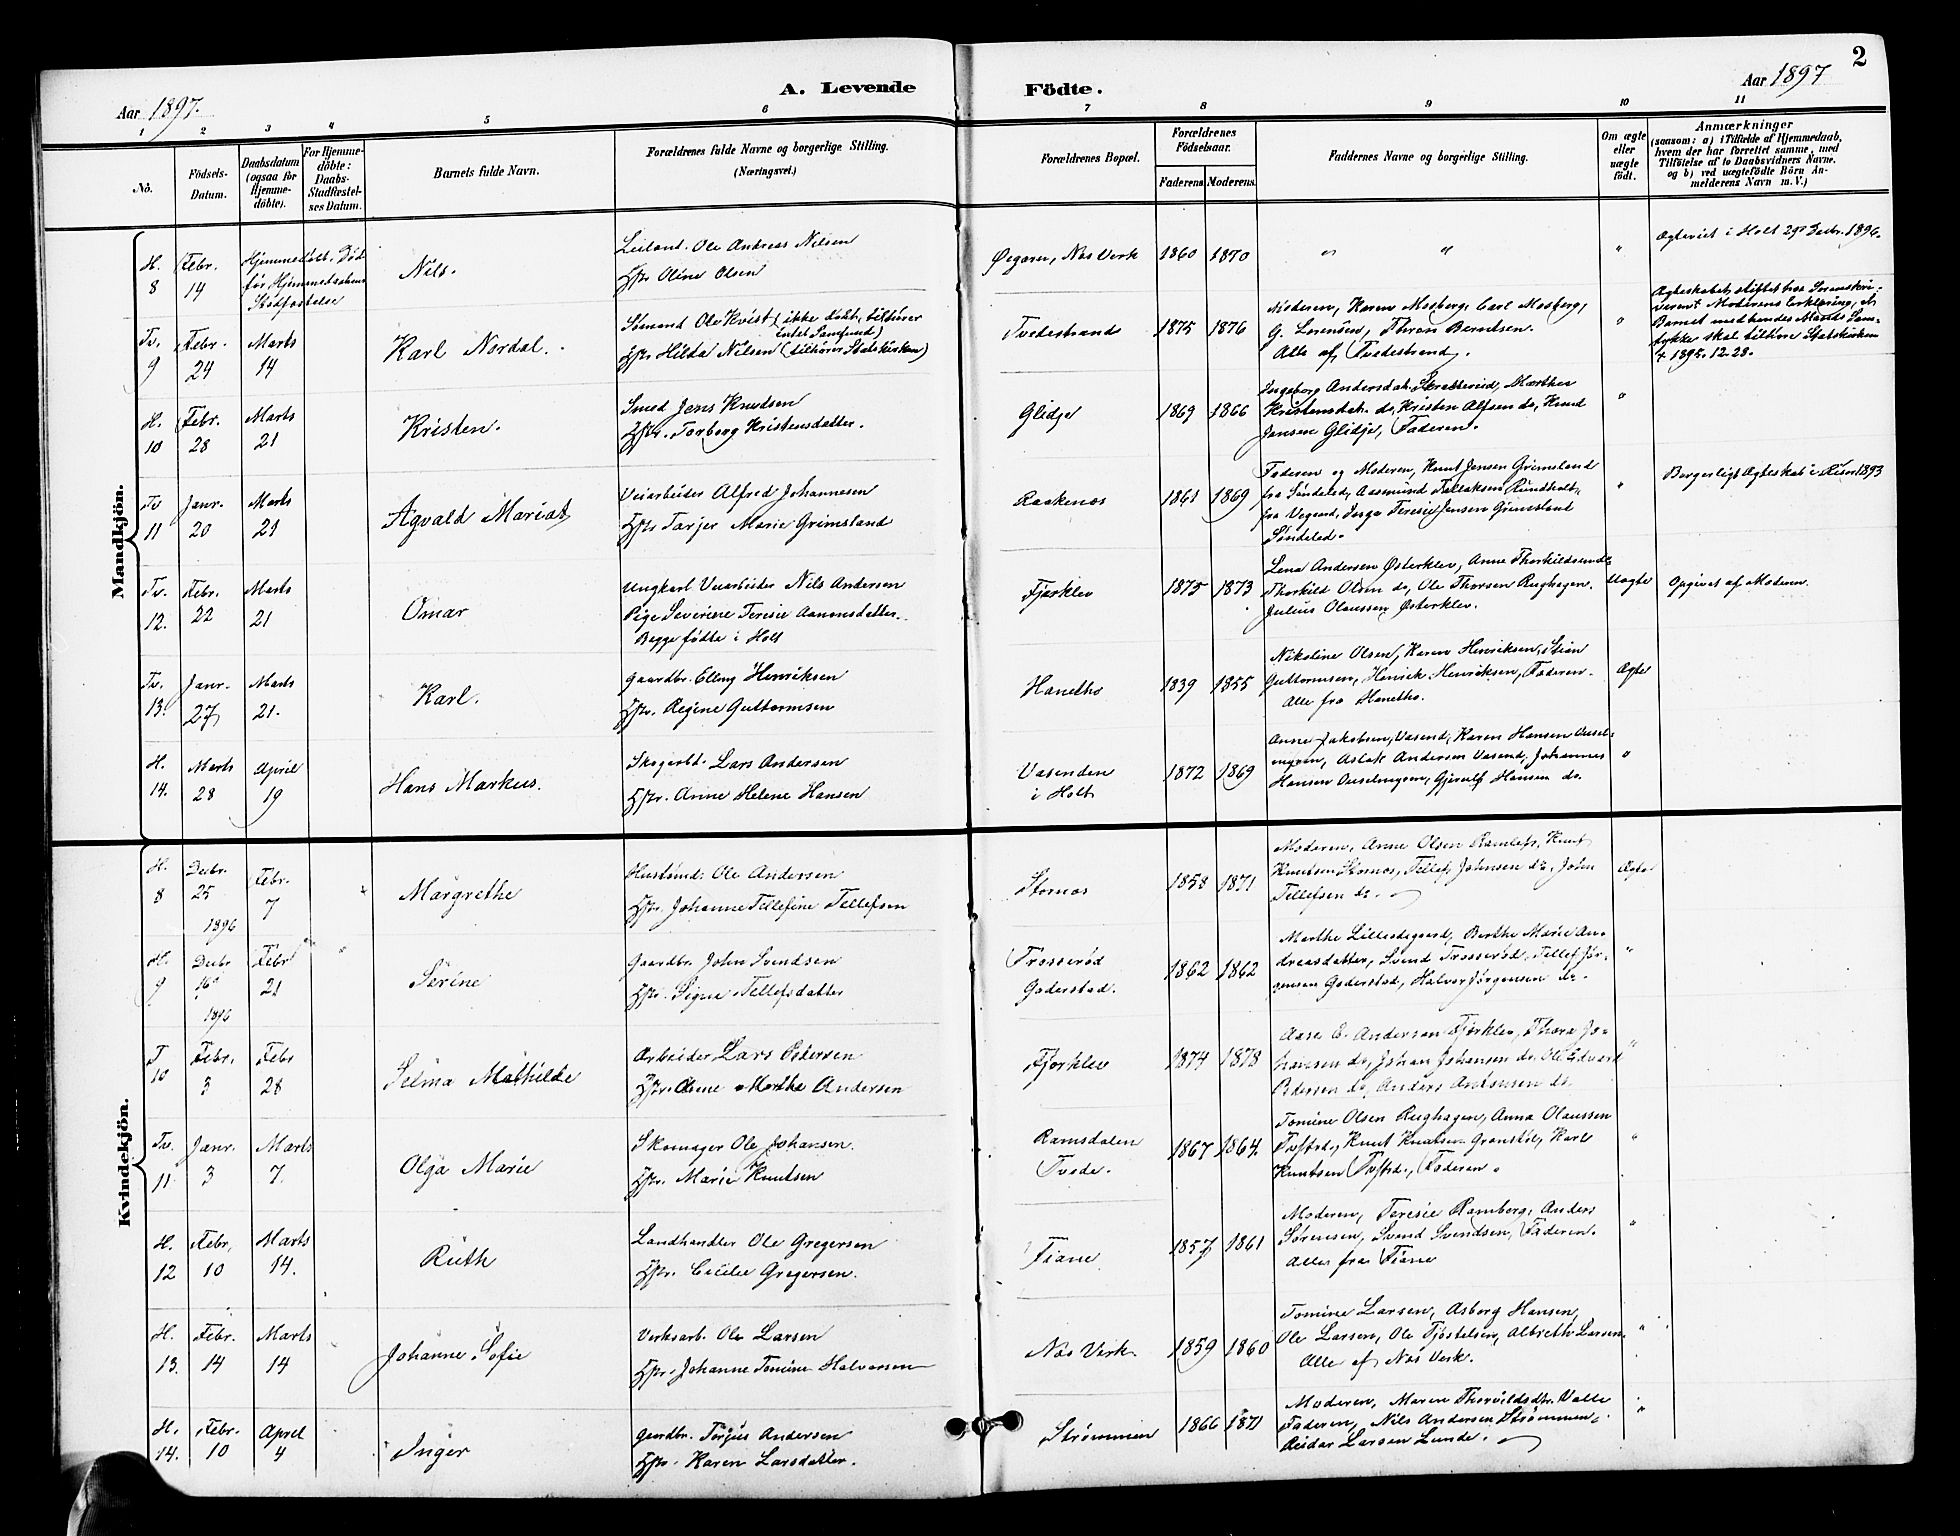 2
Aar 1897.
A. Levende
Födte.
Aar 1897
1 2 3 4 5 6 7 8 9 10 11
No.
Födsels-
Datum.
Daabsdatum
(ogsaa for
Hjemme-
döbte).
For Hjemme-
döbte:
Daabs-
Stadfæstel-
ses Datum.
Barnets fulde Navn.
Forældrenes fulde Navne og borgerlige Stilling.
(Næringsvei.)
Forældrenes Bopæl.
Forældrenes
Födselsaar.
Faderens. Moderens.
Faddernes Navne og borgerlige Stilling.
Om ægte
eller
uægte
födt.
Anmærkninger
(saasom: a) i Tilfælde af Hjemmedaab,
hvem der har forrettet samme, med
Tilföielse af to Daabsvidners Navne,
og b) ved uægtefödte Börn An-
melderens Navn m. V.)
Mandkjön.
H.
8
Febr.
14
Hjemmedöbt. Död
før Hjemmedaabens
Stadfæstelse
Nils.
Leiland. Ole Andreas Nilsen
Hstr. Oline Olsen
Øygaren, Næs Verk
1860 1870
" "
"
Ægteviet i Holt 29de Decbr. 1896.
Tv.
9
Febr.
24
Marts
14
Karl Nordal.
Sømand Ole Kvist (ikke døbt, tilhører
Hstr. Hilda Nilsen (tilhører Statskirken)
Tvedestrand
1875 1876
Moderen, Karen Mosberg, Carl Mosberg,
G. Lorensen, Thron Berntsen.
Alle af Tvedestrand.
"
Barnet med hendes Mands Sam-
tykke skal tilhøre Statskirken
1895. 12-28.
H.
10
Febr.
28
Marts
21
Kristen.
Smed Jens Knudsen
Hstr. Torborg Kristensdatter.
Glidje
1869 1866
Kristensdatr. do, Kristen Alfsen do, Knud
Jensen Glidje, Faderen.
"
Tv
11
Janr.
20
Marts
21
Agvald Mariat
Veiarbeider Alfred Johannesen
Hstr Tarjer Marie Grimsland
Raakenæs
1861 1869
Faderen og Moderen, Knut Jensen Grimsland
fra Søndeled, Aasmund Tellaksen Rundholt,
Søndeled.
"
Borgerligt Ægteskab i Risør 1893
Tv.
12.
Febr.
22
Marts
21
Omar
Ungkarl Veiarbeider Nils Andersen
Pige Severine Teresie Aanonsdatter.
Begge fødte i Holt
Fjørklev
1875 1873
Lena Andersen Østerklev, Anne Thorkildsen do
Thorkild Olsen do, Ole Thorsen Rughagen.
Julius Olaussen Østerklev.
Uægte
Opgivet af Moderen.
Tv.
13.
Janr.
27
Marts
21.
Karl.
Gaardbr. Elling Henriksen
Hstr. Regine Guttormsen
Hanetho
1839 1855
Nikoline Olsen, Karen Henriksen, Stian
Guttormsen, Henrik Henriksen, Faderen.
Alle fra Hanetho.
Ægte
H.
14.
Marts
28
April
19
Hans Markus.
Skogarbd. Lars Andersen
Hstr. Anne Helene Hansen
Vasenden
i Holt
1872 1869
Anne Jakobsen, Vasend, Karen Hansen Ausel-
myren, Aslak Andersen Vasend, Johannes
Hansen Auselmyren, Gjerulf Hansen do.
"
Kvindekjön.
H.
8
Decbr.
25
1896
Febr.
7
Margrethe
Hustømd. Ole Andersen
Hstr. Johanne Tellefine Tellefsen
Stornæs
1858 1871
Moderen, Anne Olsen Ramlefs, Knut
Knutsen Stornæs, Tellef Johnsen do, John
Tellefsen do.
Ægte
H.
9
Decbr
16
1896
Febr
21
Serine
Gaardbr. John Svendsen
Hstr. Signe Tellefsdatter
Trosserød
Goderstad.
1862 1862
Marthe Lillesdegaard, Berthe Marie An-
dreasdatter, Svend Trosserød, Tellef Jør-
gensen Goderstad, Halvor Jørgensen do.
"
T
10
Febr.
3
Febr
28
Selma Mathilde
Arbeider Lars Pedersen
Hstr. Anne Marthe Andersen
Fjørklev
1874 1878
Aase E. Andersen Fjørklev, Thora Jo-
hansen do, Johan Johansen do, Ole Edvard
Pedersen do, Anders Antonsen do.
"
Tv.
11
Janr.
3
Marts
7.
Olga Marie
Skomager Ole Johansen.
Hstr. Marie Knutsen
Ramsdalen
Tvede.
1867 1864
Tomine Olsen Rughagen, Anna Olaussen
Tvstrd., Knut Knutsen Granstøl, Karl
Knutsen Tvstrd., Faderen.
"
H.
12
Febr.
10
Marts
14.
Ruth
Landhandler Ole Gregersen
Hstr. Cecilie Gregersen.
Fiane
1857 1861
Moderen, Teresie Ramberg, Anders
Sørensen, Svend Svendsen, Faderen.
Alle fra Fiane
"
H.
13.
Febr.
14
Marts
14
Johanne Sofie
Verksarb. Ole Larsen
Hstr. Johanne Tomine Halvorsen
Næs Verk
1859 1860
Tomine Larsen, Asborg Hansen,
Ole Larsen, Ole Tjøstelsen, Albreth Larsen
Alle af Næs Verk.
"
H.
14.
Febr.
10
April
4
Inger
Gardbr. Torjus Andersen
Hstr. Karen Larsdatter.
Strømmen
1866 1871
Moderen, Maren Thorvildsdtr. Valle
Faderen, Nils Andersen Strømmen,
Reidar Larsen Lunde.
"